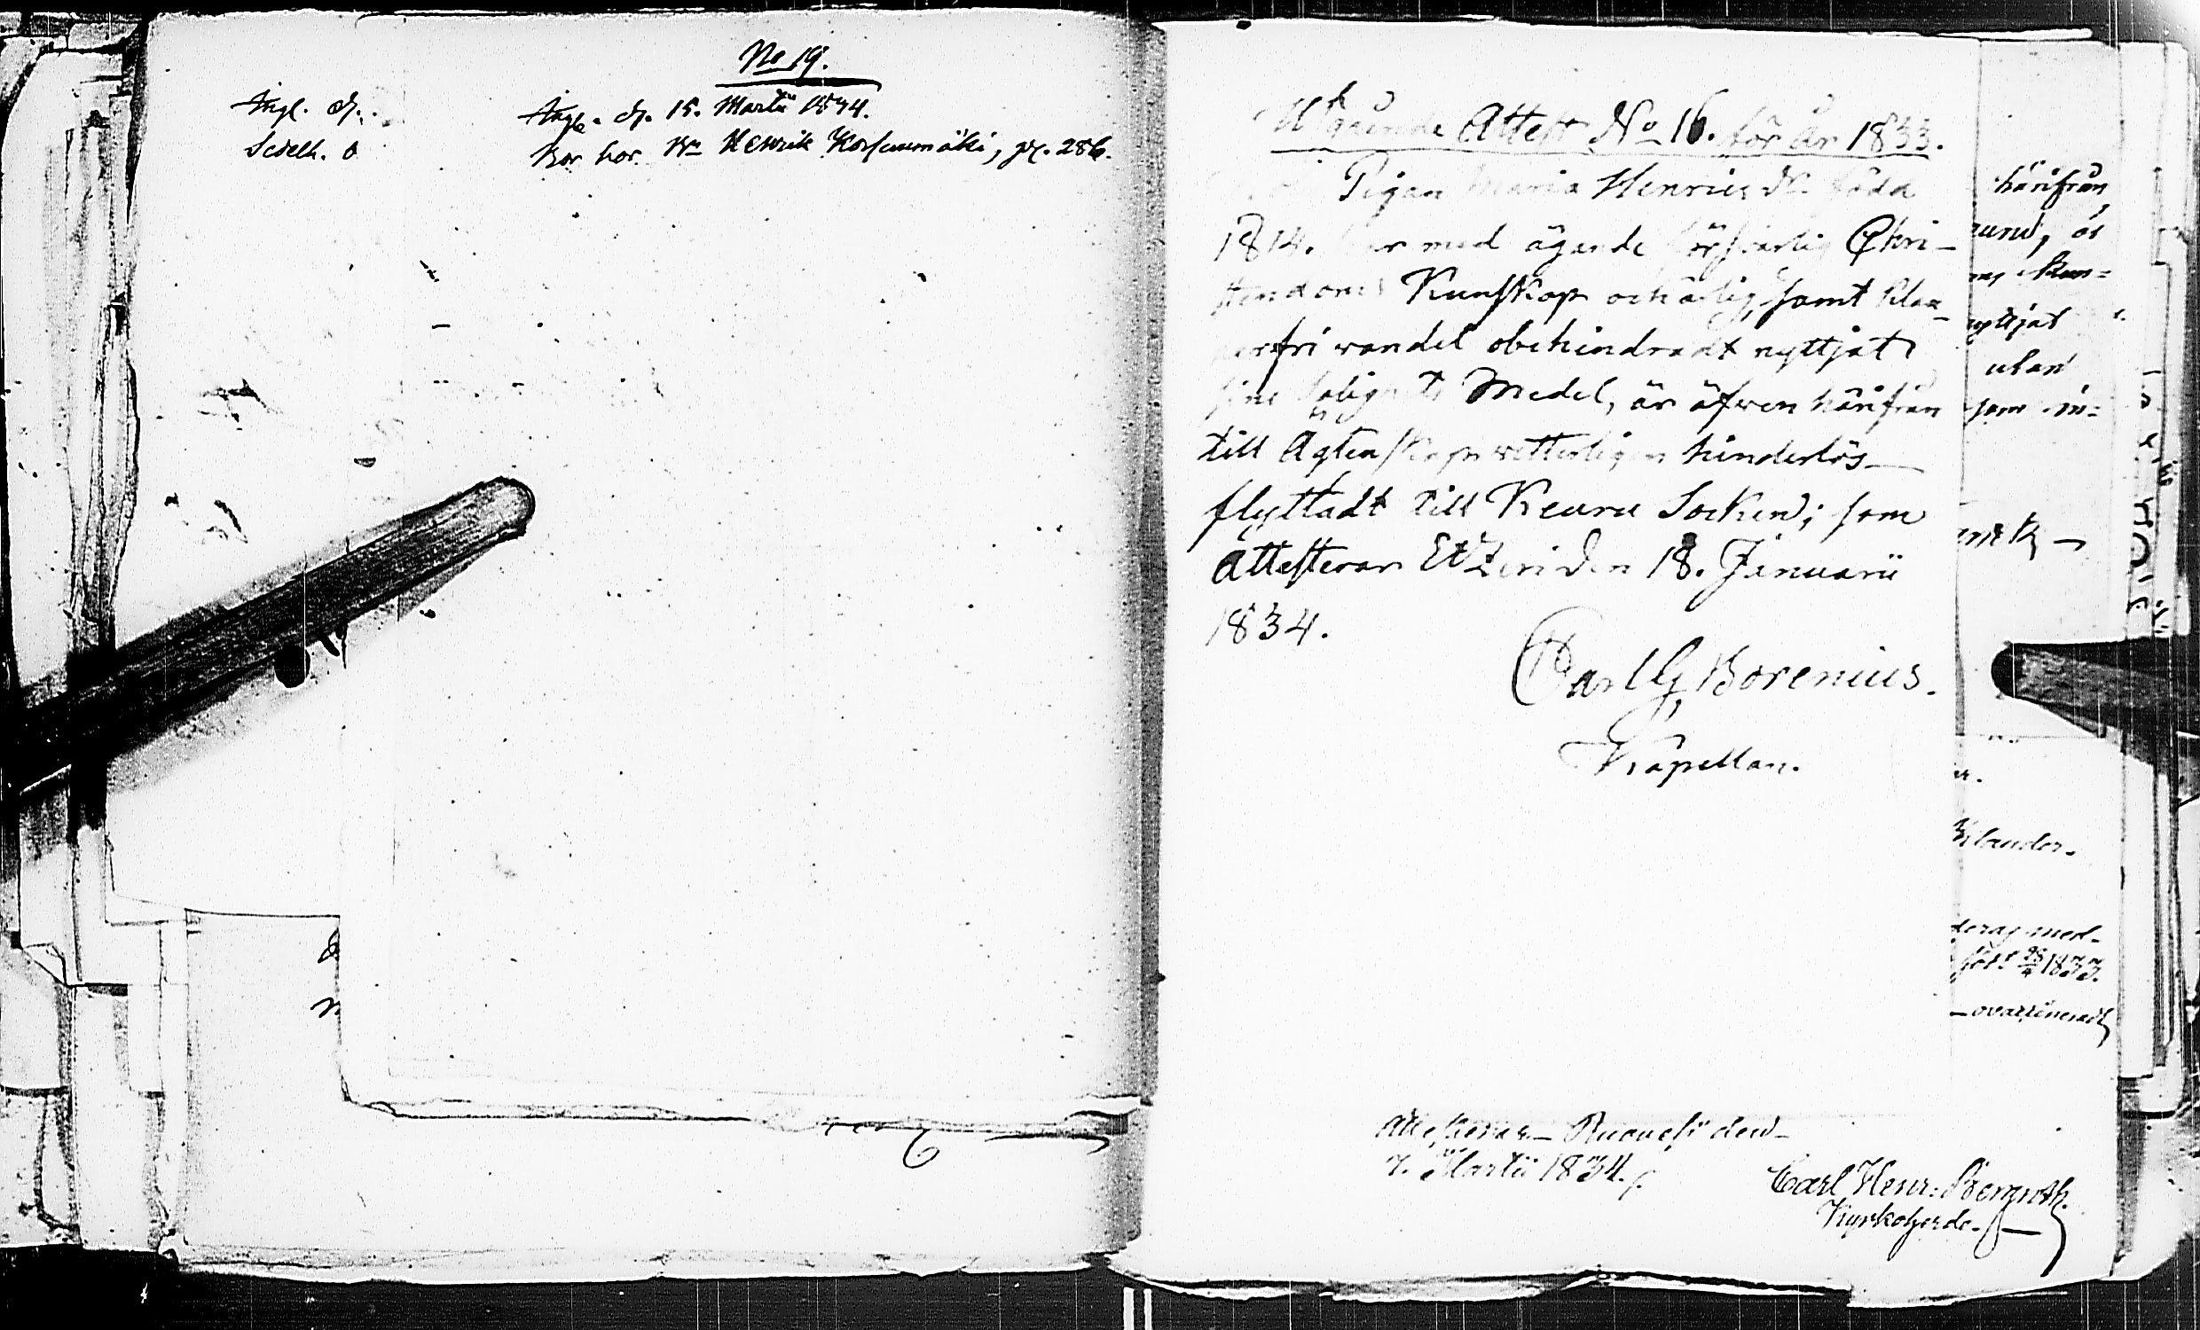 No 19.
Angl. d.
Sedelh. 0
Angl. d. 15. Martii 1834.
Bor hos Bn Henrik Korsunmäki, pg. 286.
Utgående Attest No 16. för år 1833.
Pigan Maria Henricsdr. född
1814. med ägande försvarlig Chri-
stendoms Kunskap och ärlig, samt klan-
derfri vandel obehindradt nyttjat
sine Salighets Medel, är äfwen härifrån
till Ägtenskap vetterligen hinderlös
flyttadt till Keuru Socken; som
Attesterar Etzeri den 18. Januarii
1834.
Carl G. Borenius.
Kapellan.
härifrån,
nyttjat
utan
som in=
med-
1833.
Attesteras Ruovesi den
7. Martii 1834.
Carl Henr: Bergroth.
Kyrkoherde.